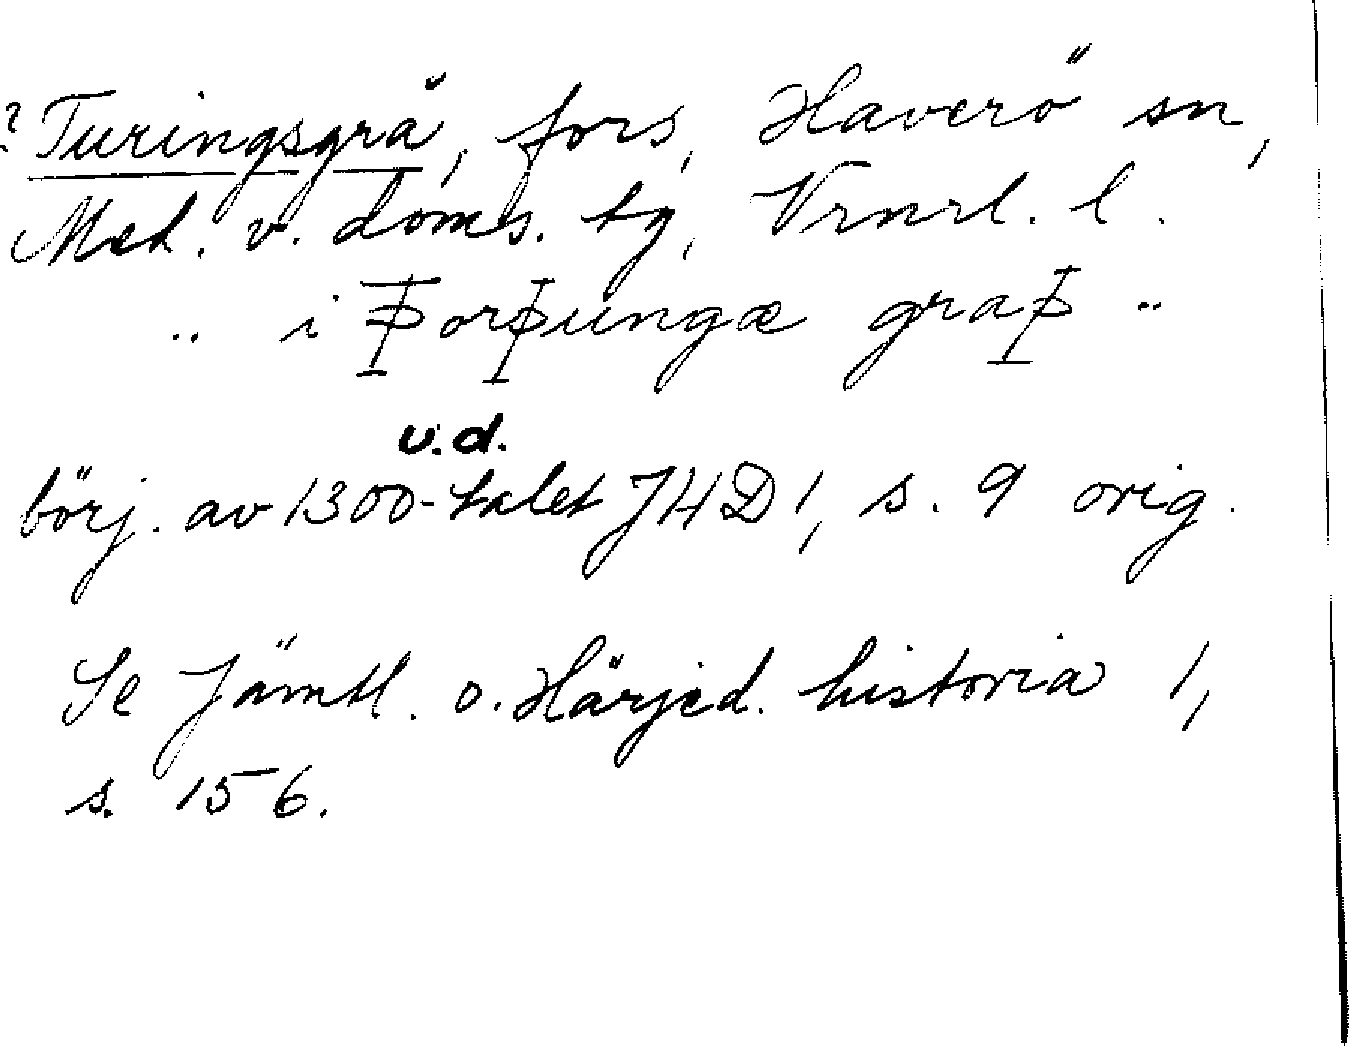 ? Turingsgrå, fors, Haverö sn,
Med. v. doms. tg, Vrnrl. l.
" i Þorþungæ graþ "
u.d.
börj. av 1300-talet JHD 1, s. 9 orig.
Se Jämtl. o. Härjed. historia 1,
s. 156.